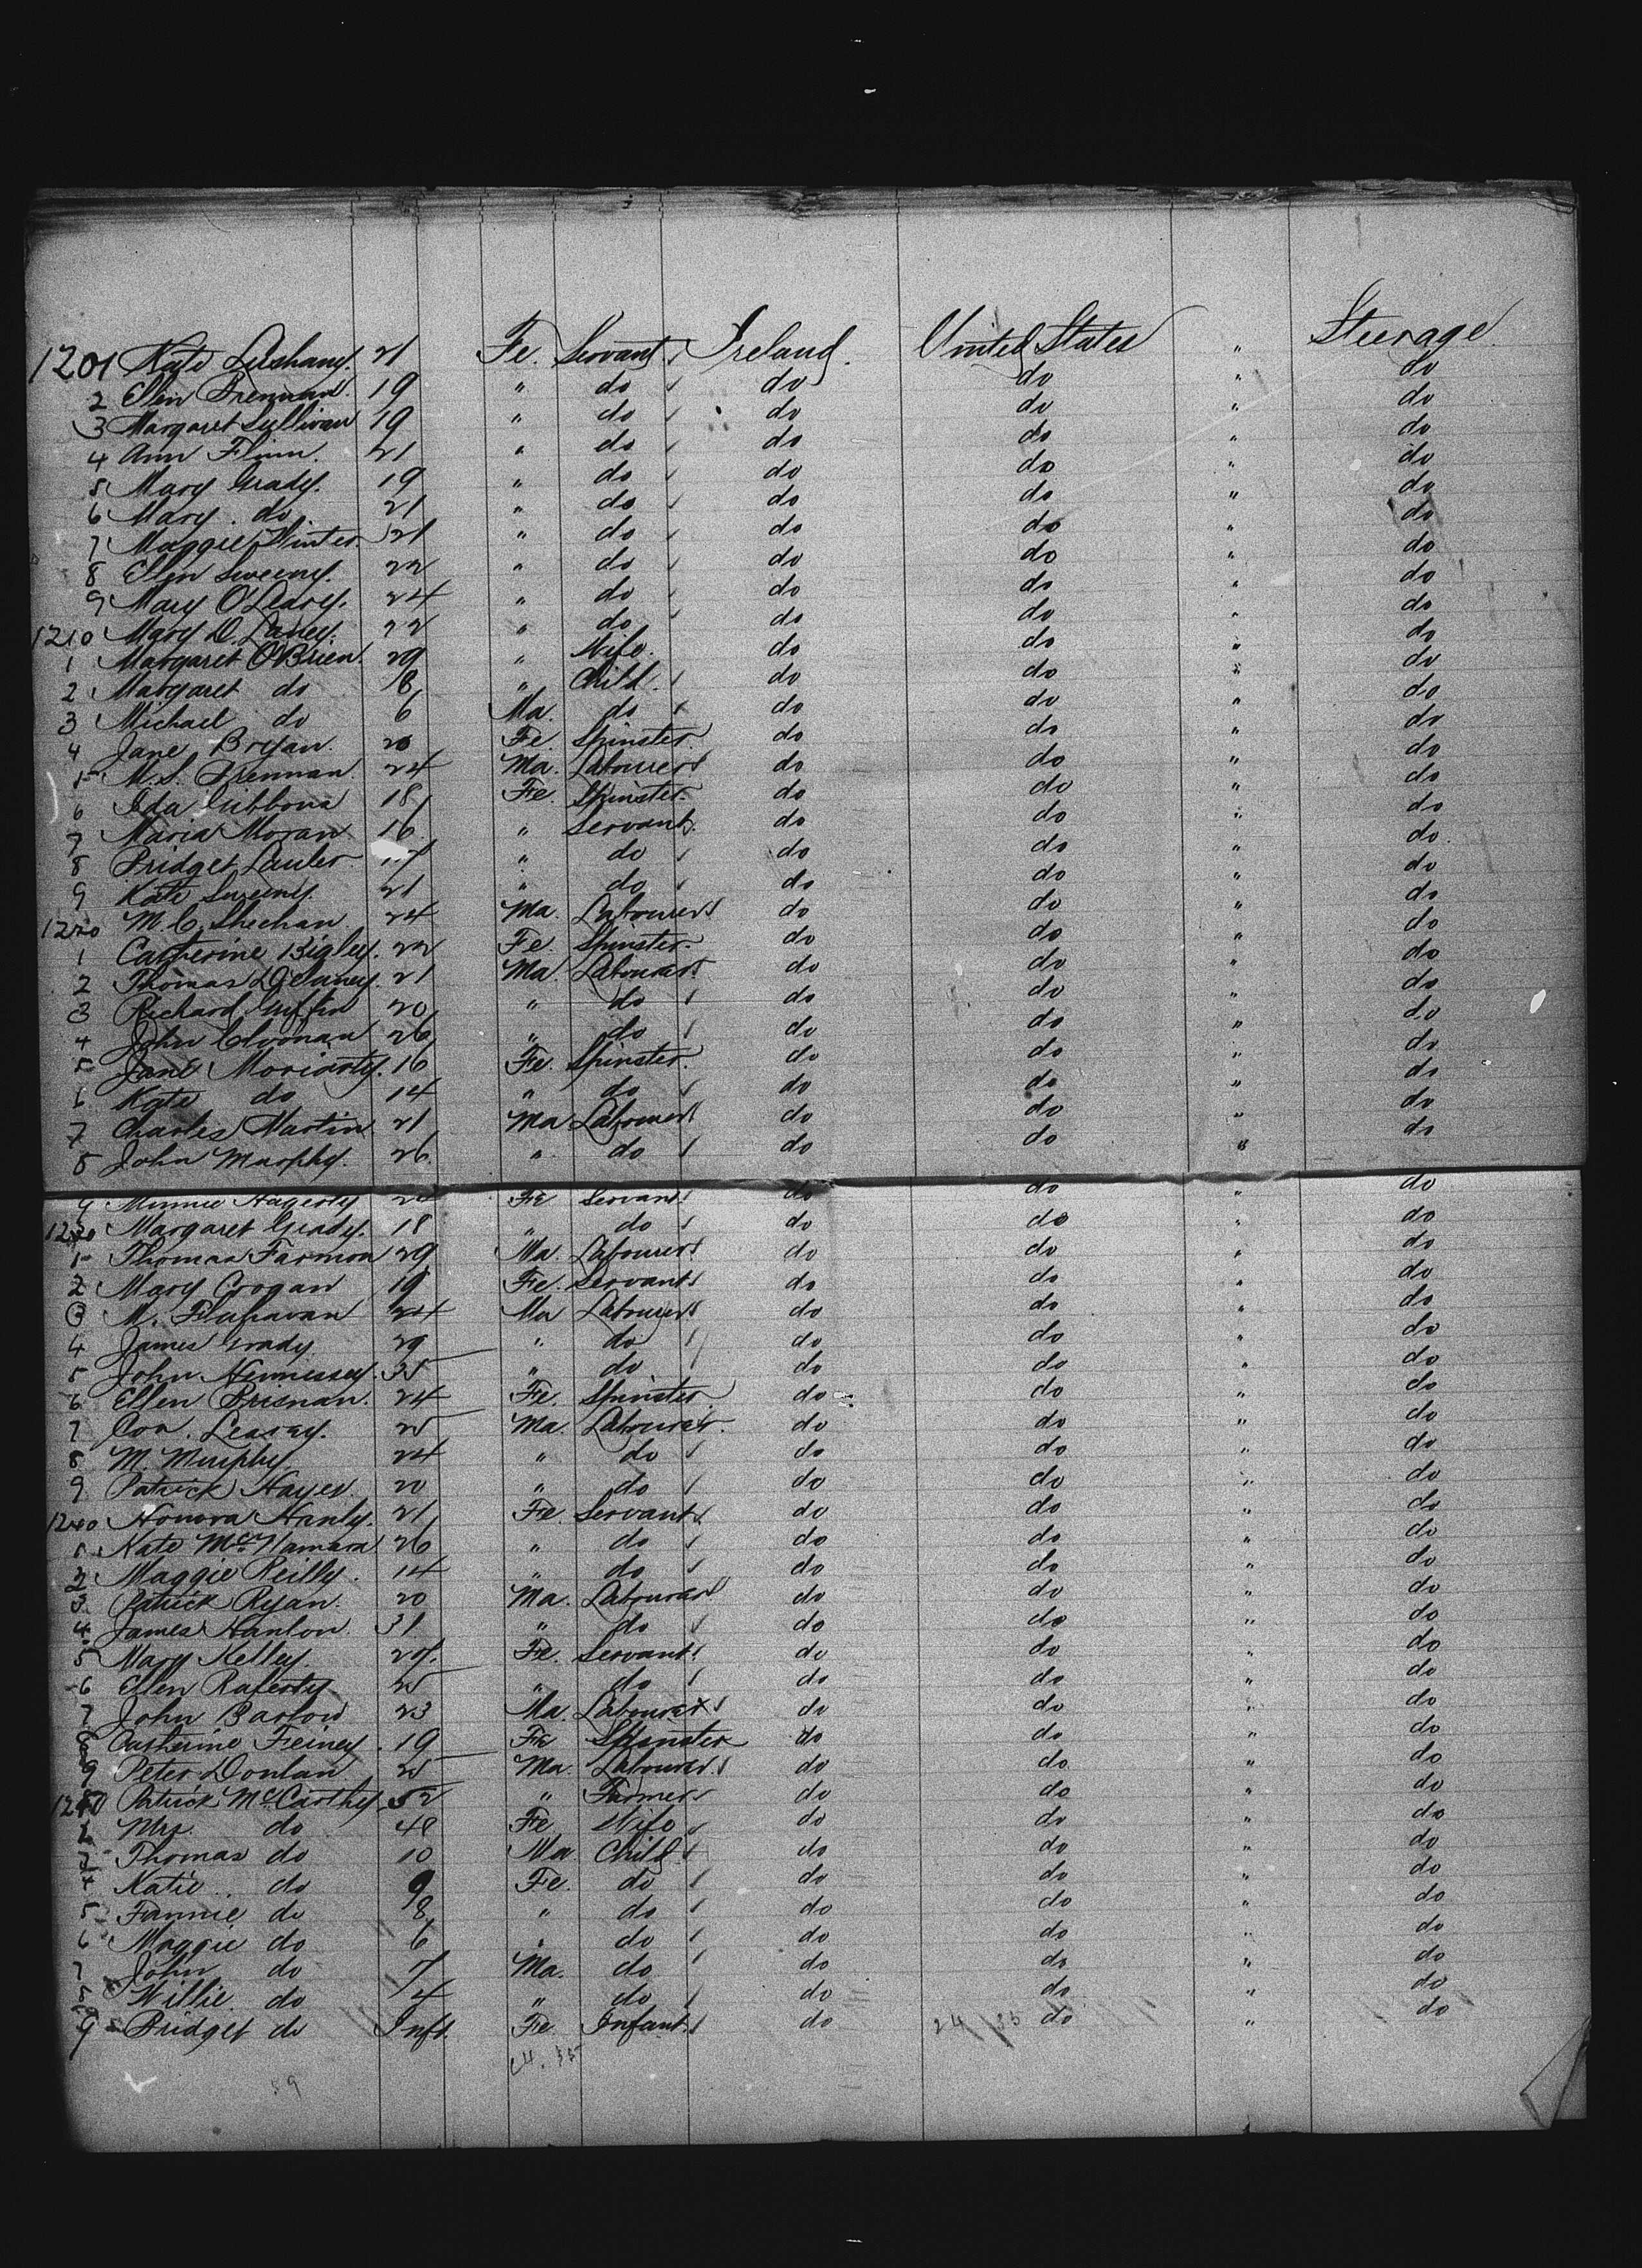 1201 Kate Lushany. 21 Fe. Servant Ireland. United States " Steerage.
2 Ellen Brennan. 19 " do do do " do
3 Margaret Sullivan 19 " do do do " do
4 Ann Flinn. 21 " do do do " do
5 Mary Grady. 19 " do do do " do
6 Mary. do 21 " do do do " do
7 Maggie Winter 21 " do do do " do
8 Ellen Sweeny. 22 " do do do " do
9 Mary O'Leary. 24 " do do do " do
1210 Mary D. Laney. 22 " do do do " do
1 Margaret O'Brien. 29 " Wife. do do " do
2 Margaret do 8 " Child. do do " do
3 Michael do 6 Ma. do do do " do
4 Jane Bryan. 20 Fe. Spinster. do do " do
5 M. S. Brennan. 24 Ma. Labourer do do " do
6 Ida Gibbons 18 Fe. Spinster. do do " do
7 Maria Moran 16 " Servant. do do " do
8 Bridget Lawler 17 " do do do " do.
9 Kate Sweeny. 21 " do do do " do
1220 M. C. Sheehan 24 Ma. Labourer do do " do
1 Catherine Bigley. 22 Fe. Spinster. do do " do
2 Thomas Delaney. 21 Ma. Labourer. do do " do
3 Richard Griffin 20 " do do do " do
4 John Cloonan 26 " do do do " do
5 Jane Moriarty. 16 Fe. Spinster. do do " do
6 Kate do 14 " do do do " do
7 Charles Martin 21 Ma Labourer do do " do
8 John Murphy. 26. " do do do " do
9 Minnie Hagerty 24 Fe Servant do do " do
1230 Margaret Grady. 18 " do do do " do
1 Thomas Farmon 29 Ma. Labourer do do " do
2 Mary Crogan 19 Fe. Servant do do " do
3 M. 24 Ma Labourer do do " do
4 James Grady. 29 " do do do " do
5 John Hennessey. 35 " do do do " do
6 Ellen Brisnan. 24 Fe. Spinster. do do " do
7 Con. Leavey. 25 Ma. Labourer. do do " do
8 M. Murphy 24 " do do do " do
9 Patrick Hayes. 20 " do do do " do
1240 Honora Hanly. 21 Fe. Servant do do " do
1 Kate McNamara 26 " do do do " do
2 Maggie Reilly. 14 " do do do " do
3 Patrick Ryan. 20 Ma. Labourer do do " do
4 James Hanlon. 31 " do do do " do
5 Mary Kelley 27. Fe. Servant do do " do
6 Ellen Raferty 25 " do do do " do
7 John Barlow 23 Ma. Labourer do do " do
8 Catherine Feiney. 19 Fe Spinster do do " do
9 Peter Donlan 25 Ma. Labourer do do " do
Patrick McCarthy 52 " Farmer do do " do
2 Mrs. do 48 Fe Wife do do " do
3 Thomas do 10 Ma Child do do " do
4 Katie do 9 Fe. do do do " do
5 Fannie do 8 " do do do " do
6 Maggie do 6 " do do do " do
7 John do 7 Ma. do do do " do
8 Willie. do 4 " do do do " do
9 Bridget do Inft. Fe Infant. do 24 35 do " do
24. 35
59